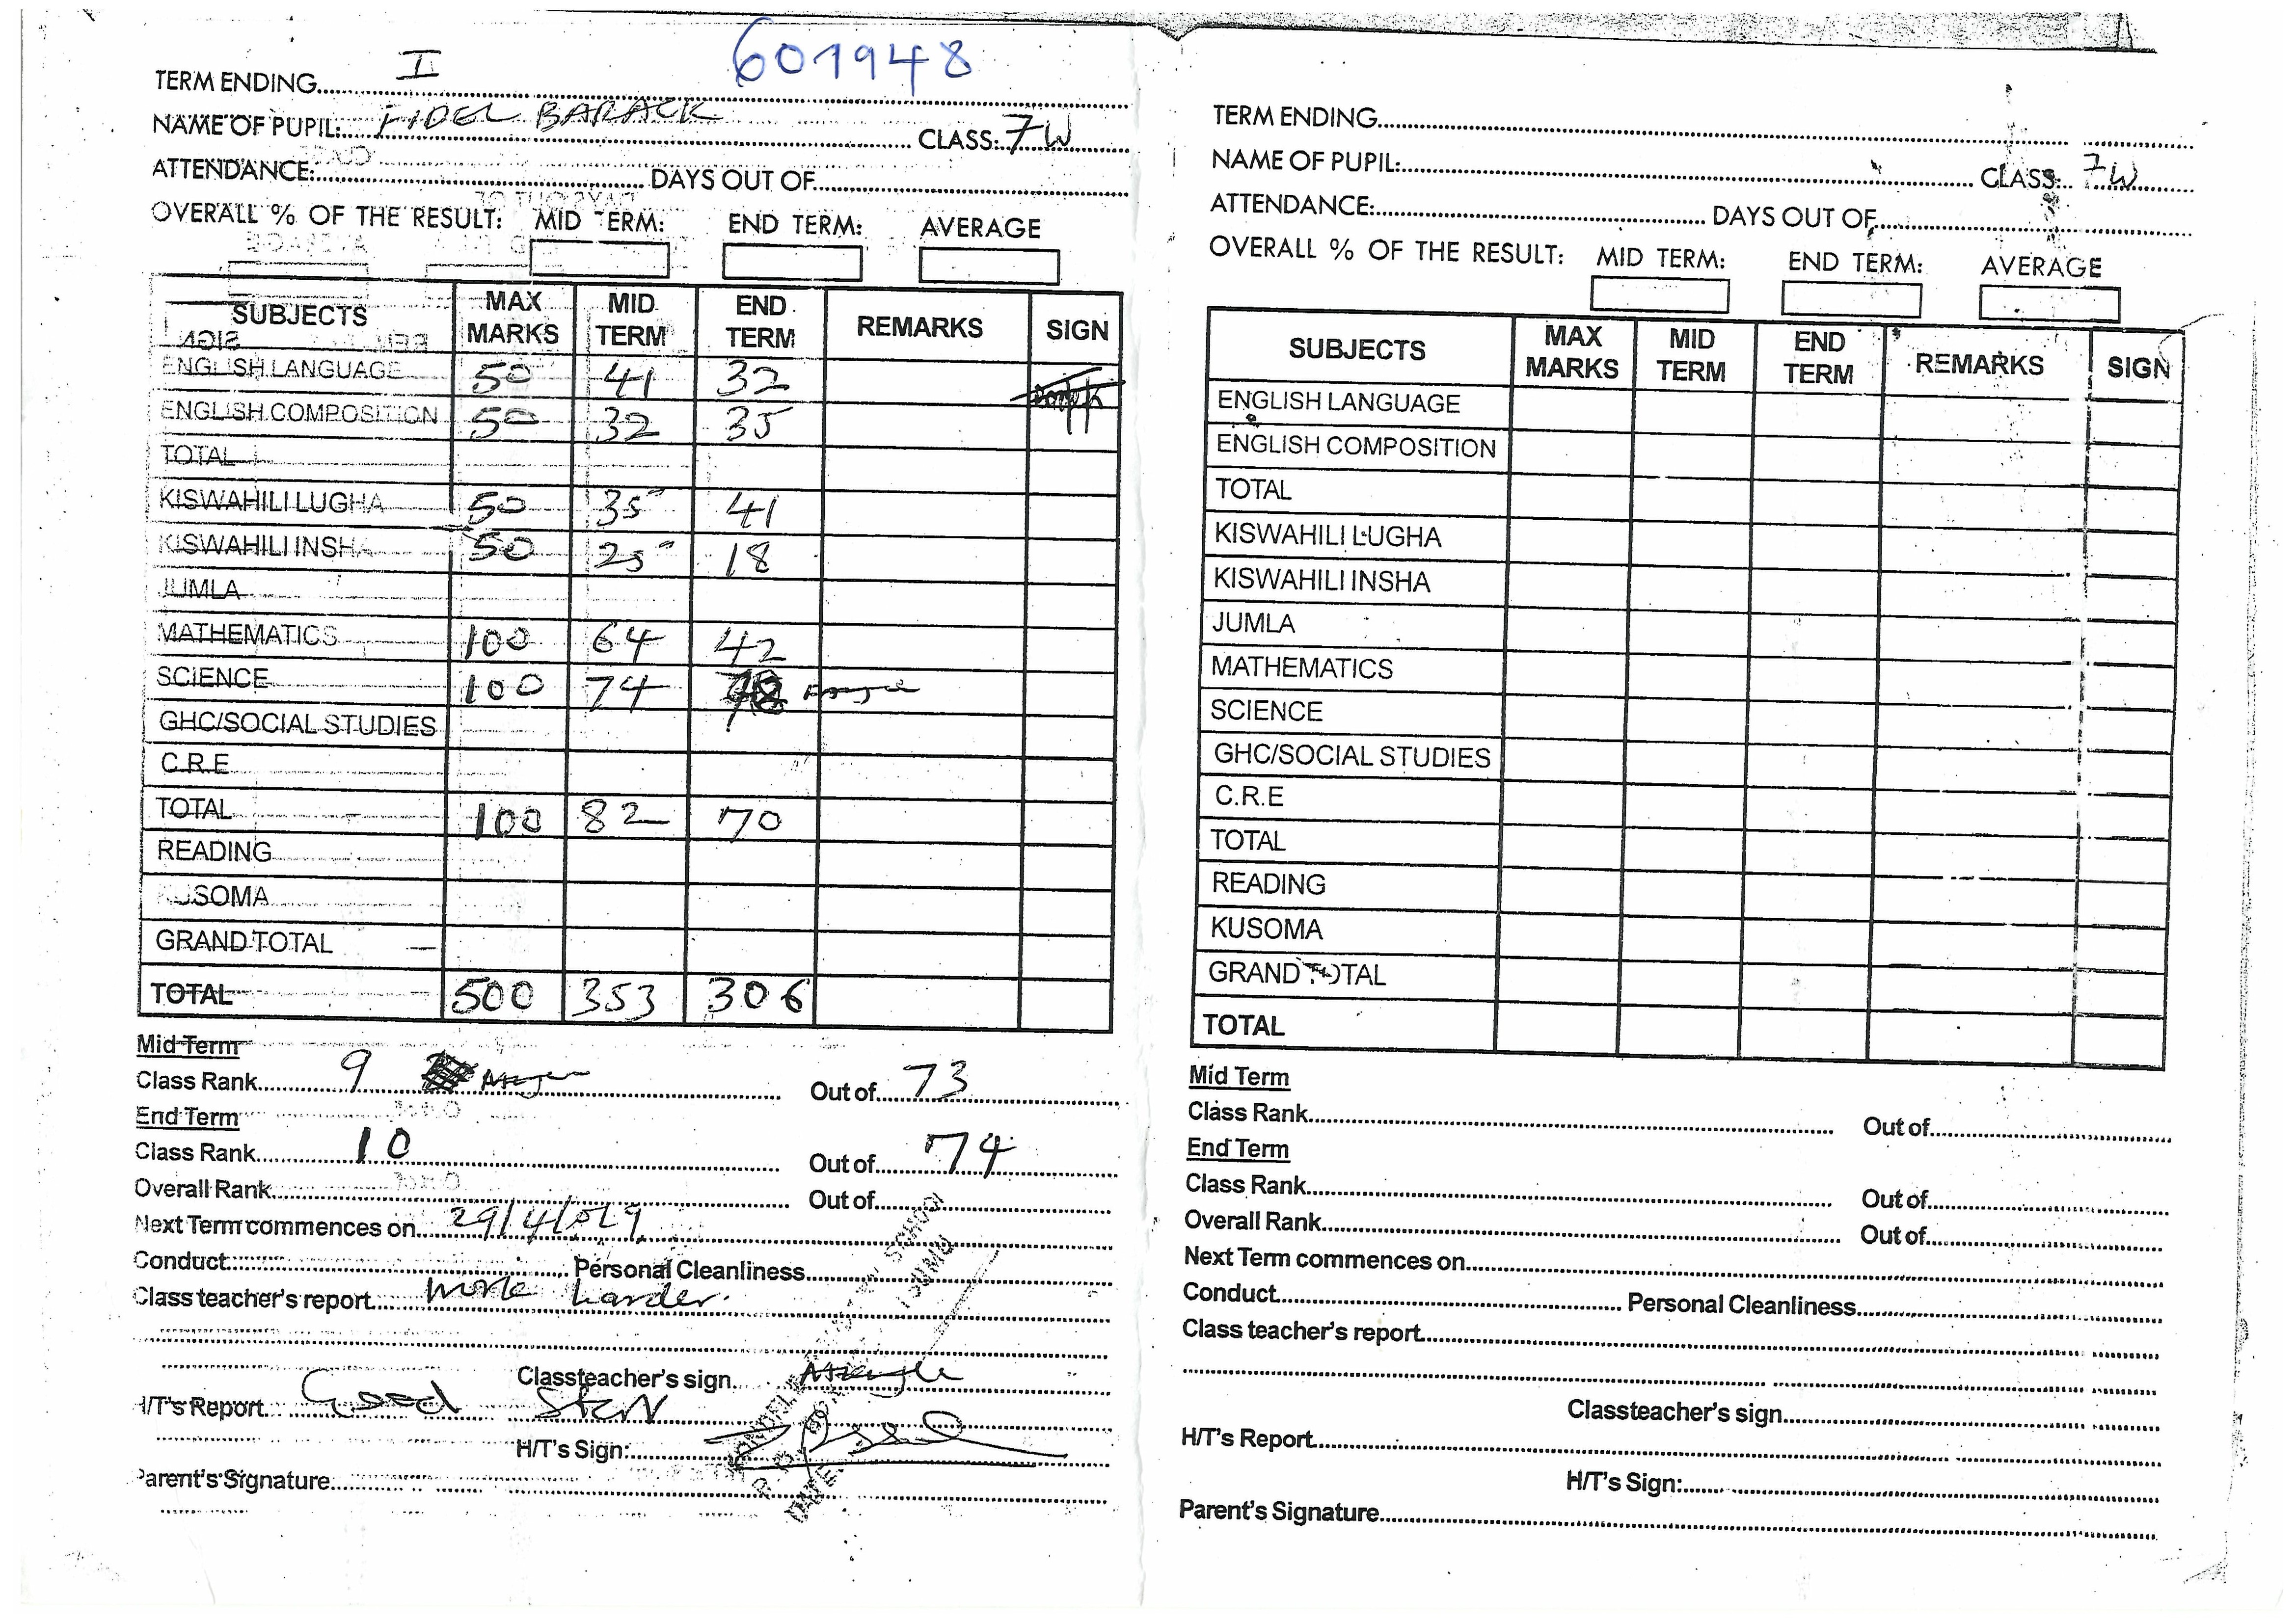 601948
TERM ENDING I
NAME OF PUPIL: FIDEL BARACK CLASS: 7W
ATTENDANCE: DAYS OUT OF
OVERALL % OF THE RESULT: MID TERM: END TERM: AVERAGE
SUBJECTS MAX MARKS MID TERM END TERM REMARKS SIGN
ENGLISH LANGUAGE 50 41 32
ENGLISH COMPOSITION 50 32 35
TOTAL
KISWAHILI LUGHA 50 35 41
KISWAHILI INSHA 50 25 18
JUMLA
MATHEMATICS 100 64 42
SCIENCE 100 74
GHC/SOCIAL STUDIES
C.R.E
TOTAL 100 82 70
READING
KUSOMA
GRAND TOTAL
TOTAL 500 353 306
Mid Term
Class Rank 9 Out of 73
End Term
Class Rank 10 Out of 74
Overall Rank Out of
Next Term commences on 29/4/2019
Conduct Personal Cleanliness
Class teacher's report work harder.
Classteacher's sign
H/T's Report Good
H/T's Sign:
Parent's Signature
TERM ENDING
NAME OF PUPIL: CLASS: 7W
ATTENDANCE: DAYS OUT OF
OVERALL % OF THE RESULT: MID TERM: END TERM: AVERAGE
SUBJECTS MAX MARKS MID TERM END TERM REMARKS SIGN
ENGLISH LANGUAGE
ENGLISH COMPOSITION
TOTAL
KISWAHILI LUGHA
KISWAHILI INSHA
JUMLA
MATHEMATICS
SCIENCE
GHC/SOCIAL STUDIES
C.R.E
TOTAL
READING
KUSOMA
GRAND TOTAL
TOTAL
Mid Term
Class Rank Out of
End Term
Class Rank Out of
Overall Rank Out of
Next Term commences on
Conduct Personal Cleanliness
Class teacher's report
Classteacher's sign
H/T's Report
H/T's Sign:
Parent's Signature